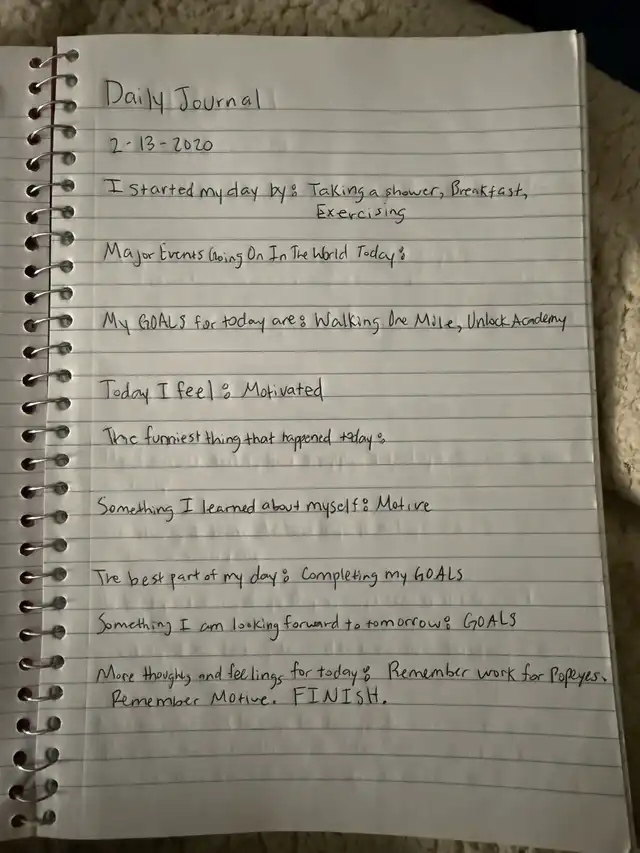 Daily Journal
2-13-2020
I started my day by: Taking a shower, Breakfast,
Exercising
Major Events Going On In The World Today:
My GOALS for today are: Walking One Mile, Unlock Academy
Today I feel: Motivated
The funniest thing that happened today:
Something I learned about myself: Motive
The best part of my day: Completing my GOALS
Something I am looking forward to tomorrow: GOALS
More thoughts and feelings for today: Remember work for Popeyes.
Remember Motive. FINISH.